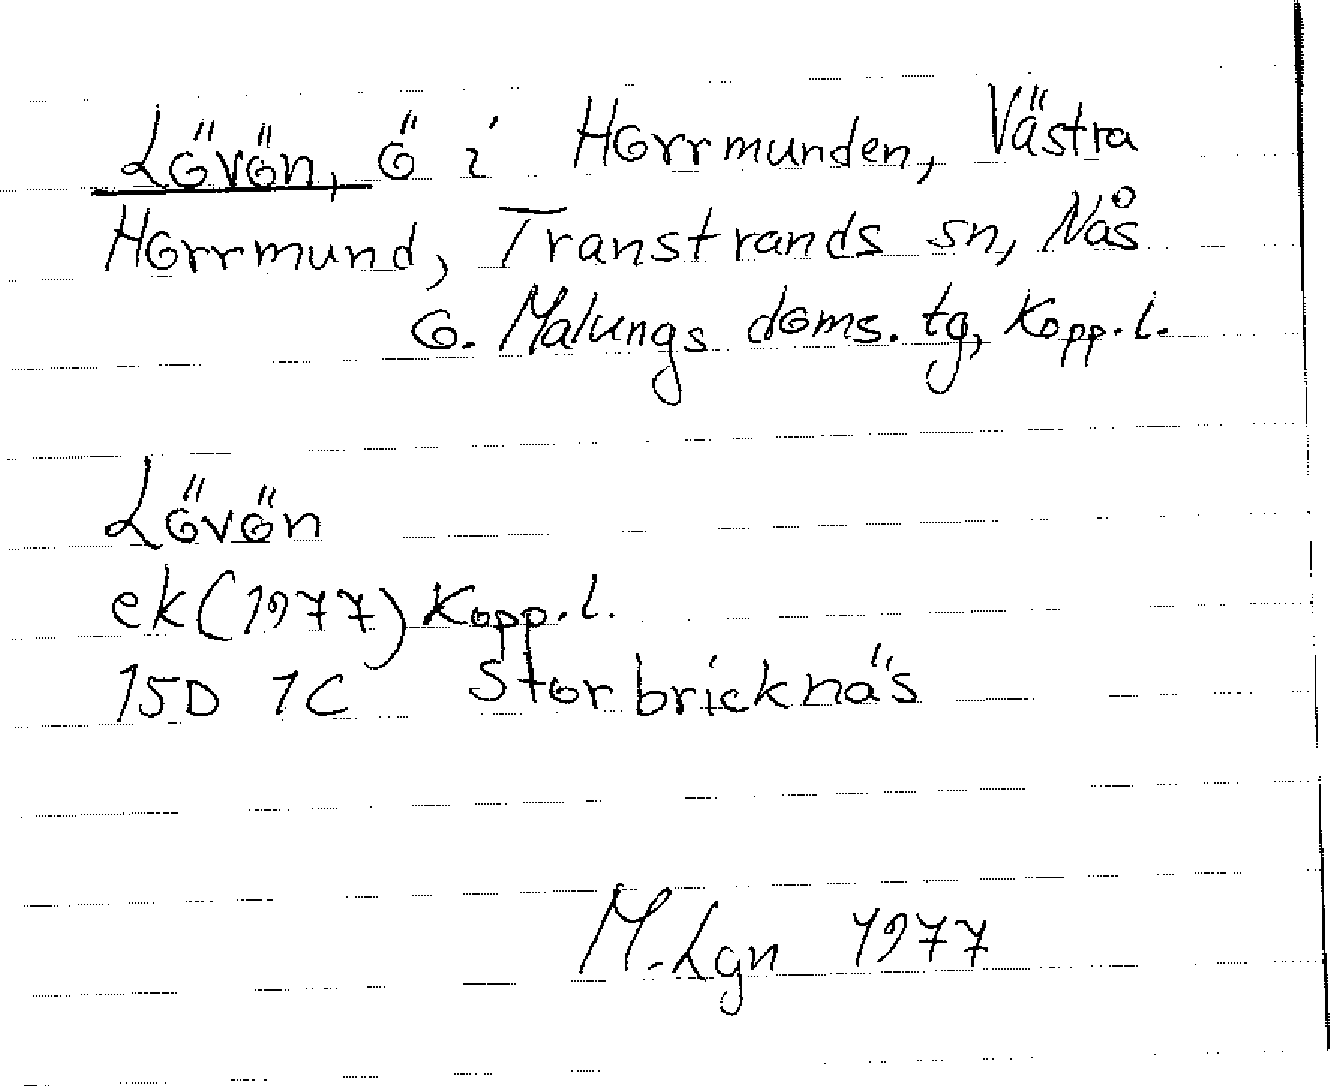 Lövön, ö i Horrmunden, Västra
Horrmund, Transtrands sn, Nås
o. Malungs doms. tg, Kopp. l.
Lövön
ek (1977) Kopp. l.
15D 1C Storbricknäs
M. Lgn 1977